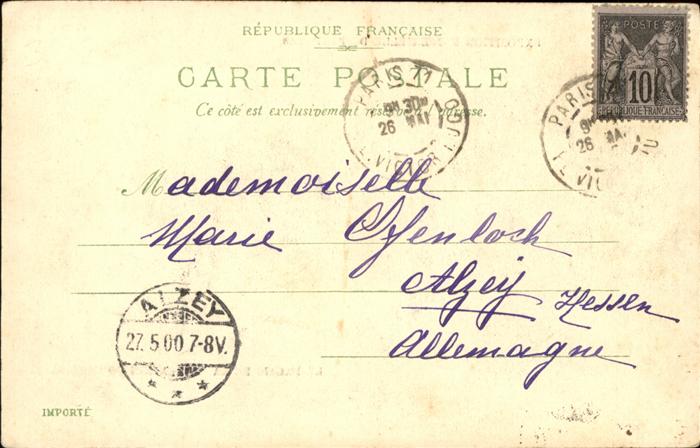 RÉPUBLIQUE FRANÇAISE
CARTE POSTALE
Ce côté est exclusivement réservé à l'adresse.
POSTE
10
REPUBLIQUE FRANÇAISE
PARIS
30
26 MAI
PARIS
26
Mademoiselle
Marie Ofenloch
Alzey Hessen
Allemagne
ALZEY
27.5.00.7-8V.
IMPORTÉ